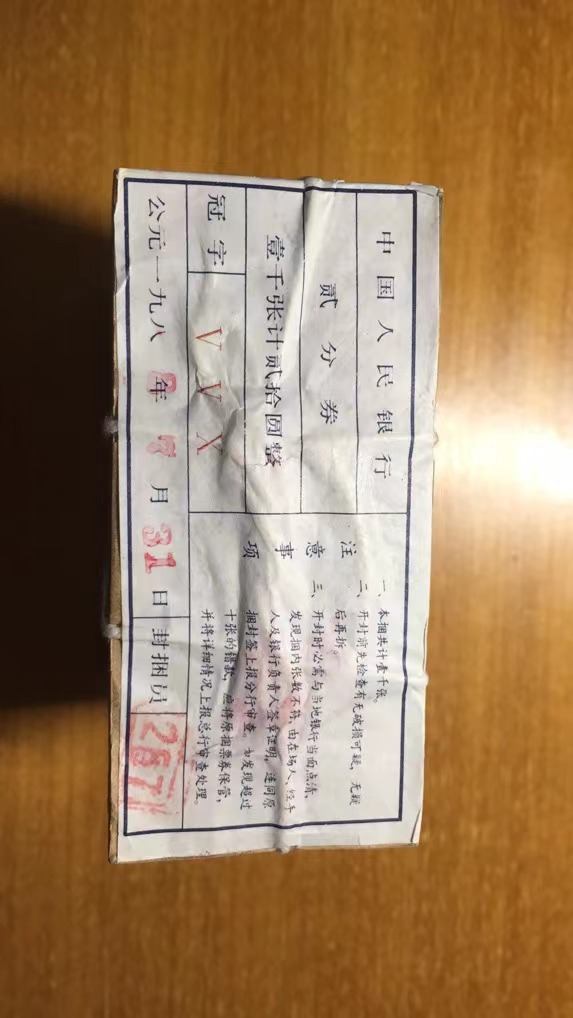 中国人民银行
贰分券
壹千张计贰拾圆整
冠字 V V X
公元一九八 年 月 31 日 封捆员
注意事项
一、本捆共计壹千张。
二、开封前先检查有无破损可疑，无疑
后再拆。
三、开封时必需与当地银行当面点清，
发现捆内张数不符，由在场人、经手
人及银行负责人签章证明，连同原
捆封签上报分行审查。如发现超过
十张的错款，应将原捆票券保管，
并将详细情况上报总行审查处理。